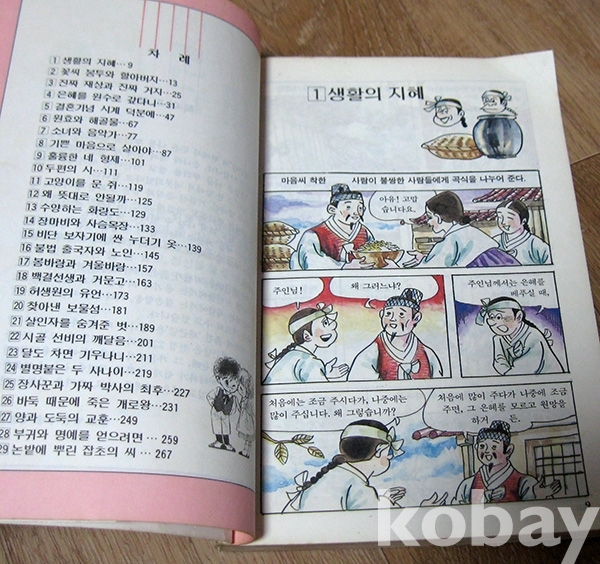 차 례
1 생활의 지혜…9
2 꽃씨 봉투와 할아버지…13
3 진짜 재상과 진짜 거지…25
4 은혜를 원수로 갚다니…31
5 결혼기념 시계 덕분에…47
6 원효와 해골물…67
7 소녀와 음악가…77
8 기쁜 마음으로 살아야…87
9 훌륭한 네 형제…101
10 두편의 시…111
11 고양이를 문 쥐…119
12 왜 뜻대로 안될까…125
13 수양하는 화랑도…129
14 장마비와 사슴목장…137
15 비단 보자기에 싼 누더기 옷…139
16 불법 출국자와 노인…145
17 봄바람과 겨울바람…157
18 백결선생과 거문고…163
19 허생원의 유언…173
20 찾아낸 보물섬…181
21 살인자를 숨겨준 벗…189
22 시골 선비의 깨달음…201
23 달도 차면 기우나니…211
24 별명붙은 두 사나이…219
25 장사꾼과 가짜 박사의 최후…227
26 바둑 때문에 죽은 개로왕…231
27 양과 도둑의 교훈…249
28 부귀와 명예를 얻으려면…259
29 논밭에 뿌린 잡초의 씨…267
1 생활의 지혜
마음씨 착한 사람이 불쌍한 사람들에게 곡식을 나누어 준다.
아유! 고맙
습니다요.
주인님!
왜 그러느냐?
주인님께서는 은혜를
베푸실 때,
처음에는 조금 주시다가, 나중에는
많이 주십니다. 왜 그렇습니까?
처음에 많이 주다가 나중에 조금
주면, 그 은혜를 모르고 원망을
하거 든.
9
kobay